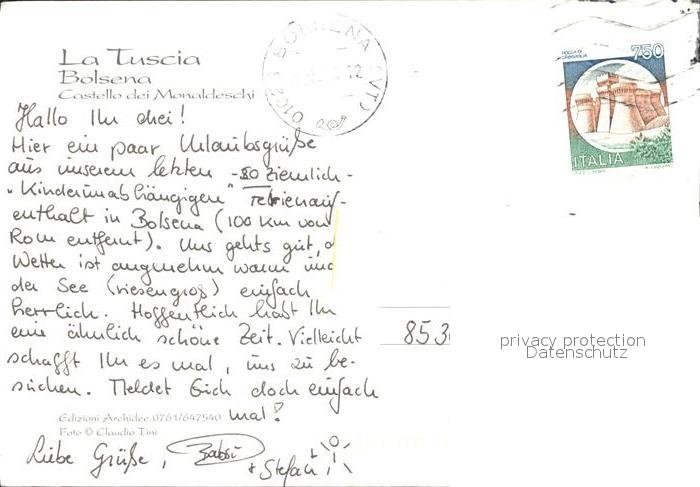 La Tuscia
Bolsena
Castello dei Monaldeschi
01023 BOLSENA (VT)
12
ROCCA DI URBISAGLIA
750
ITALIA
Hallo Ihr drei!
Hier ein paar Urlaubsgrüße
aus unserem letzten - so ziemlich -
"Kinderunabhängigen" Ferienauf-
enthalt in Bolsena (100 Km von
Rom entfernt). Uns gehts gut, d
Wetter ist angenehm warm und
der See (riesengroß) einfach
herrlich. Hoffentlich habt Ihr
eine ähnlich schöne Zeit. Vielleicht
schafft Ihr es mal, uns zu be-
suchen. Meldet Euch doch einfach
mal!
853
privacy protection
Datenschutz
Edizioni Archidee 0761/647540
Foto © Claudio Tini
Liebe Grüße, Babsi
+ Stefan